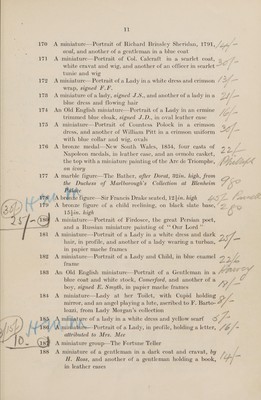 11
170 A miniature—Portrait of Richard Brinsley Sheridan, 1791,
oval, and another of a gentleman in a blue coat
171 A miniature—Portrait of Col. Calcraft in a scarlet coat,
white cravat and wig, and another of an officer in scarlet
tunic and wig
172 A miniature—Portrait of a Lady in a white dress and crimson
wrap, signed F.F.
173 A miniature of a lady, signed J.N., and another of a lady in a
blue dress and flowing hair
174 An Old English miniature—Portrait of a Lady in an ermine
trimmed blue cloak, signed J.B., in oval leather case
175 A miniature—Portrait of Countess Polock in a crimson
dress, and another of William Pitt in a crimson uniform
with blue collar and wig, ovals
176 A bronze medal—New South Wales, 1854, four casts of
Napoleon medals, in leather case, and an ormolu casket,
the top with a miniature painting of the Arc de Triomphe,
on ivory
177 A marble figure—The Bather, after Dorat, 32in. high, from
the Duchess of Marlborough's Collection at Blenheim
Palace
178 A bronze figure—Sir Francis Drake seated, 12½in. high
179 A bronze figure of a child reclining, on black slate base,
15½in. high
180 A miniature—Portrait of Firdosee, the great Persian poet,
and a Russian miniature painting of "Our Lord"
181 A miniature—Portrait of a Lady in a white dress and dark
hair, in profile, and another of a lady wearing a turban,
in papier mache frames
182 A miniature—Portrait of a Lady and Child, in blue enamel
frame
183 An Old English miniature—Portrait of a Gentleman in a
blue coat and white stock, Comerford, and another of a
boy, signed E. Smyth, in papier mache frames
184 A miniature—Lady at her Toilet, with Cupid holding
mirror, and an angel playing a lute, ascribed to F. Barto-
lozzi, from Lady Morgan's collection
185 A miniature of a lady in a white dress and yellow scarf
186 A miniature—Portrait of a Lady, in profile, holding a letter,
attributed to Mrs. Mee
187 A miniature group—The Fortune Teller
188 A miniature of a gentleman in a dark coat and cravat, by
H. Ross, and another of a gentleman holding a book,
in leather cases